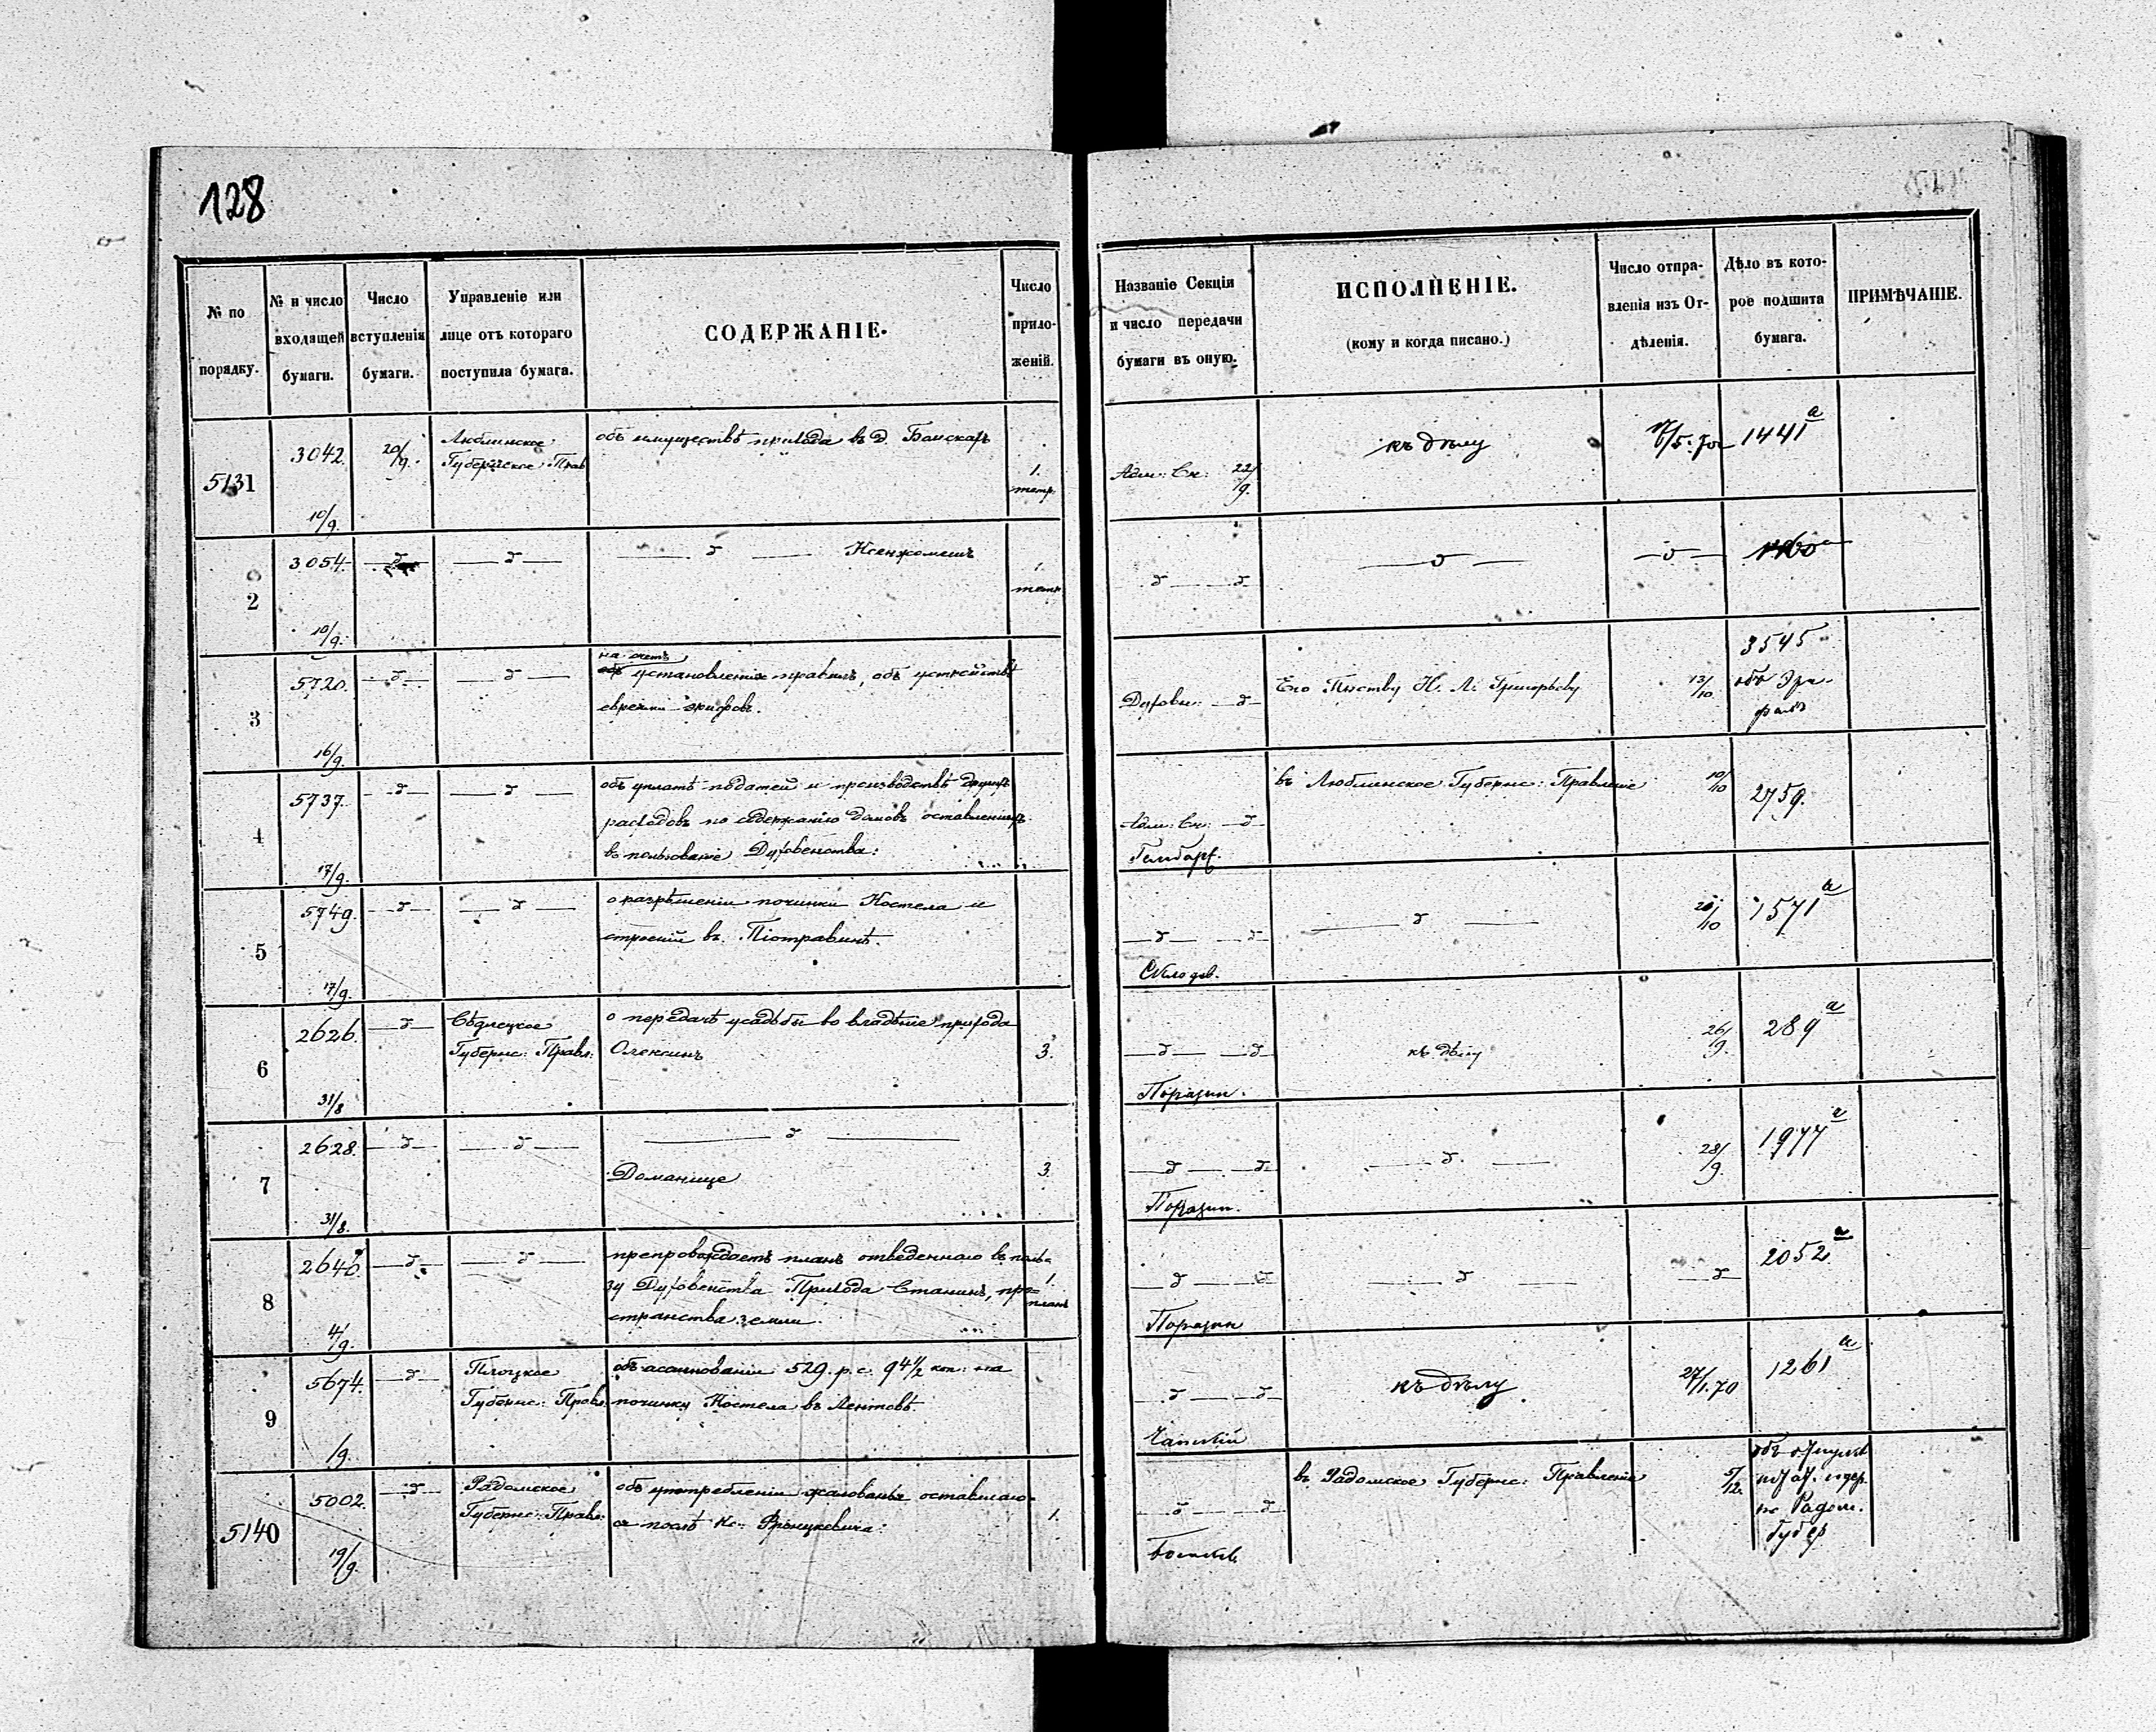 128
№ по порядку.
№ и число входящей бумаги.
Число вступленія бумаги.
Управленіе или лице отъ котораго поступила бумага.
СОДЕРЖАНІЕ.
Число приложеній.
Названіе Секціи и число передачи бумаги въ оную.
ИСПОЛНЕНІЕ.
(кому и когда писано.)
Число отправленія изъ Отдѣленія.
Дѣло въ которое подшита бумага.
ПРИМѢЧАНІЕ.
5131
3042.
10/9.
20/9.
Люблинское
Губернское Прав
объ имуществѣ прихода въ д.
1.
Адм: Ск: 22/9.
къ дѣлу
1441 а
2
3054.
10/9.
—δ—
—δ—
—δ—
1.
δ — δ
—δ—
—δ—
3
5720.
16/9.
—δ—
—δ—
на счетъ
установленія правилъ, объ устройствѣ
еврейки эрифовъ.
Духовн: —δ—
Его Пр-ству Н. А. Григорьеву
13/10.
3545
объ Эри-
фахъ
4
5737.
17/9.
—δ—
—δ—
объ уплатѣ податей и производствѣ другихъ
расходовъ по содержанію домовъ оставленныхъ
въ пользованіе Духовенства:
Адм: Ск: —δ
въ Люблинское Губернс: Правленіе
10/10
2759.
5
5749.
17/9.
—δ—
—δ—
о разрѣшеніи починки Костела и
строеній въ Піотравинѣ.
—δ— —δ—
—δ—
20/10
1571 а
6
2626.
31/8
—δ
Сѣдлецкое
Губернс: Правл:
о передачѣ усадьбы во владѣніе прихода
Олексинъ
3.
—δ— —δ
Поразин.
къ дѣлу
26/9.
289 а
7
2628.
31/8.
—δ—
—δ—
—δ—
Доманице
3.
—δ— —δ—
Поразин.
—δ—
28/9.
1977 а
8
4/9.
—δ—
—δ—
препровождаетъ планъ отведеннаго въ поль-
зу Духовенства Прихода Станинъ, про-
странства земли.
1.
планъ
—δ— —δ
Поразин
—δ—
—δ
2052 а
9
5674.
/9.
—δ—
Плоцкое
Губернс: Правл:
объ асигнованіи 529 р. с. 94 1/2 коп: на
починку Костела въ Лентовѣ.
—δ— —δ
Чапскій
къ дѣлу
27/1.70
1261 а
5140
5002.
19/9.
—δ
Радомское
Губернс: Правл:
объ употребленіи жалованья оставшаго-
ся послѣ Кс:
1.
—δ— —δ
въ Радомское Губернс: Правленіе
5/12.
по Радом.
губер